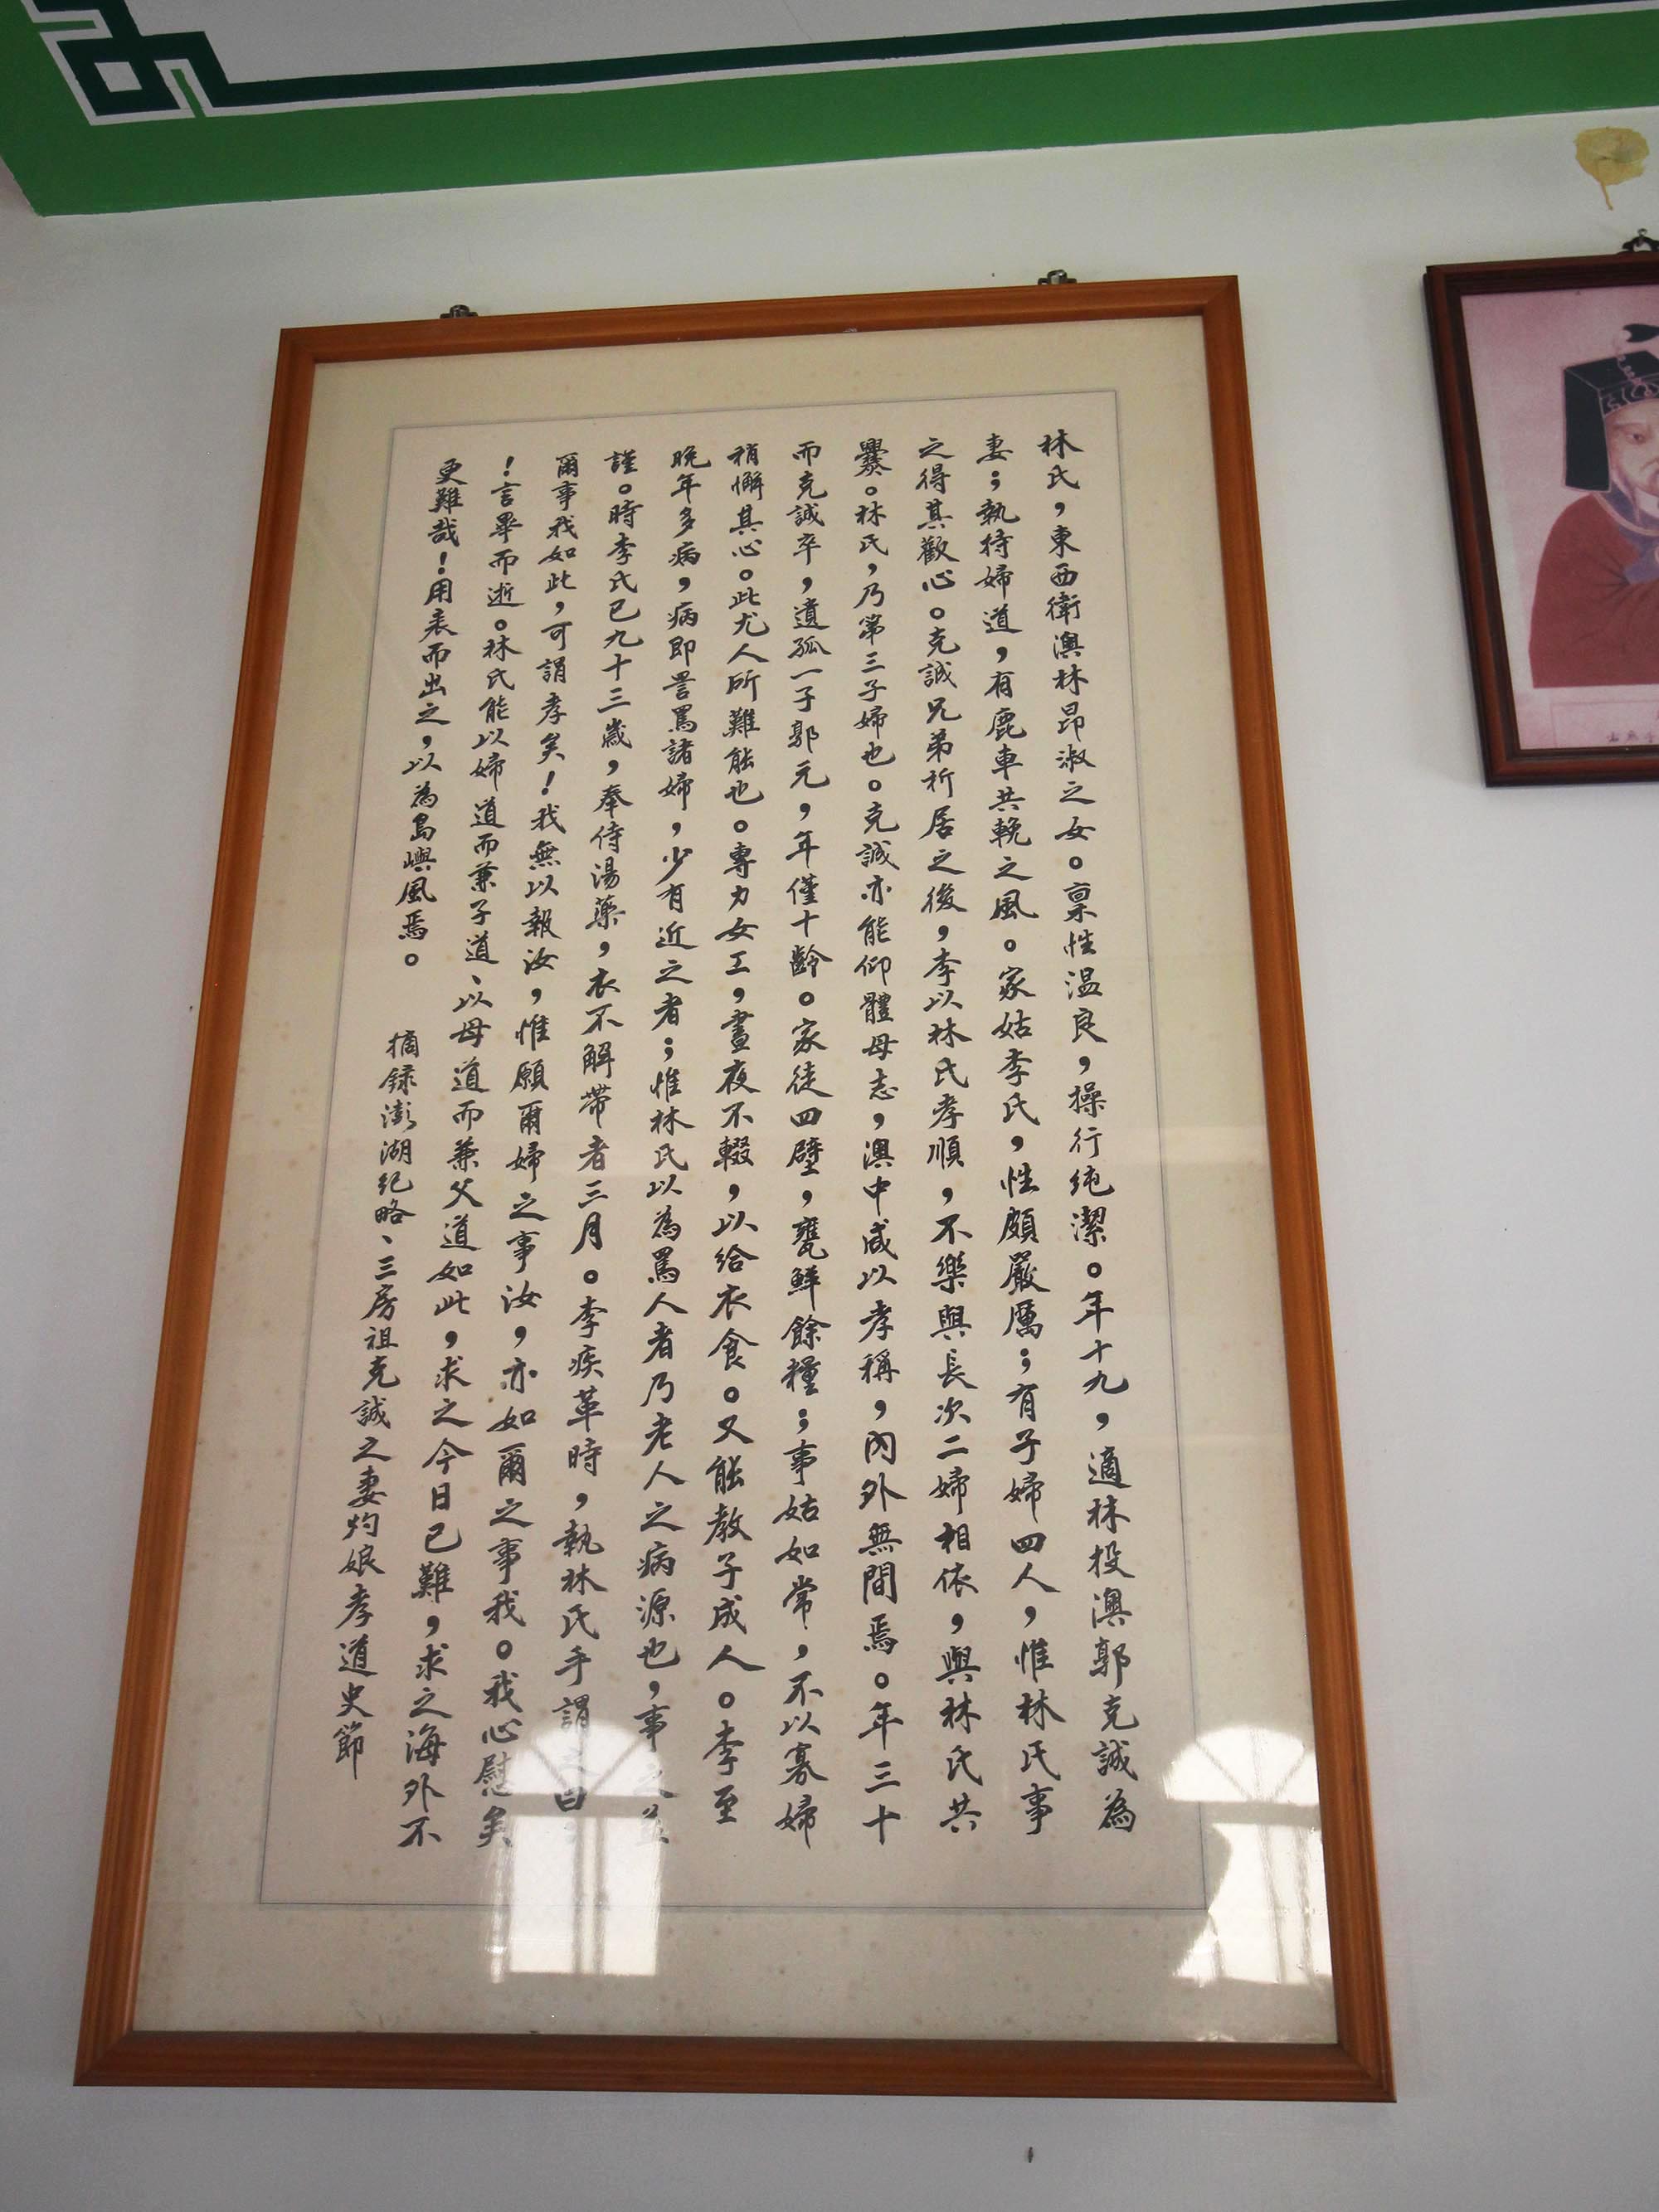 林氏，東西衛澳林昂淑之女。稟性温良，操行純潔。年十九，適林投澳郭克誠為
妻；執持婦道，有鹿車共輓之風。家姑李氏，性頗嚴厲；有子婦四人，惟林氏事
之得其歡心。克誠兄弟析居之後，李以林氏孝順，不樂與長次二婦相依，與林氏共
爨。林氏，乃第三子婦也。克誠亦能仰體母志，澳中咸以孝稱，內外無間焉。年三十
而克誠卒，遺孤一子郭元，年僅十齡。家徒四壁，甕鮮餘糧；事姑如常，不以寡婦
稍懈其心。此尤人所難能也。專力女工，晝夜不輟，以給衣食。又能教子成人。李至
晚年多病，病即詈罵諸婦，少有近之者；惟林氏以為罵人者乃老人之病源也，事之益
謹。時李氏已九十三歲，奉侍湯藥，衣不解帶者三月。李疾革時，執林氏手謂之曰：
爾事我如此，可謂孝矣！我無以報汝，惟願爾婦之事汝，亦如爾之事我。我心慰矣
！言畢而逝。林氏能以婦道而兼子道、以母道而兼父道如此，求之今日已難，求之海外不
更難哉！用表而出之，以為島嶼風焉。
摘録澎湖紀略、三房祖克誠之妻灼娘孝道史節